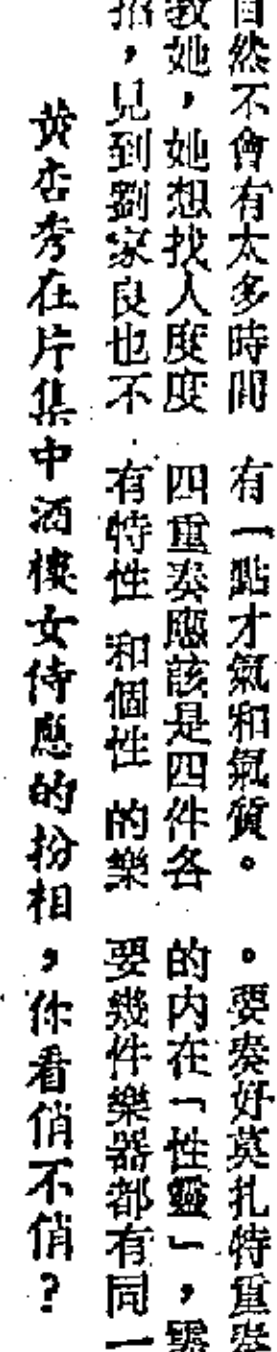 自然不會有太多時間
教她，她想找人度度
招，見到劉家良也不
有一點才氣和氣質。
四重奏應該是四件各
有特性 和個性 的樂
。要奏好莫扎特重奏
的内在「性靈」，需
要幾件樂器都有同一
黃杏秀在片集中酒樓女侍應的扮相，你看俏不俏？